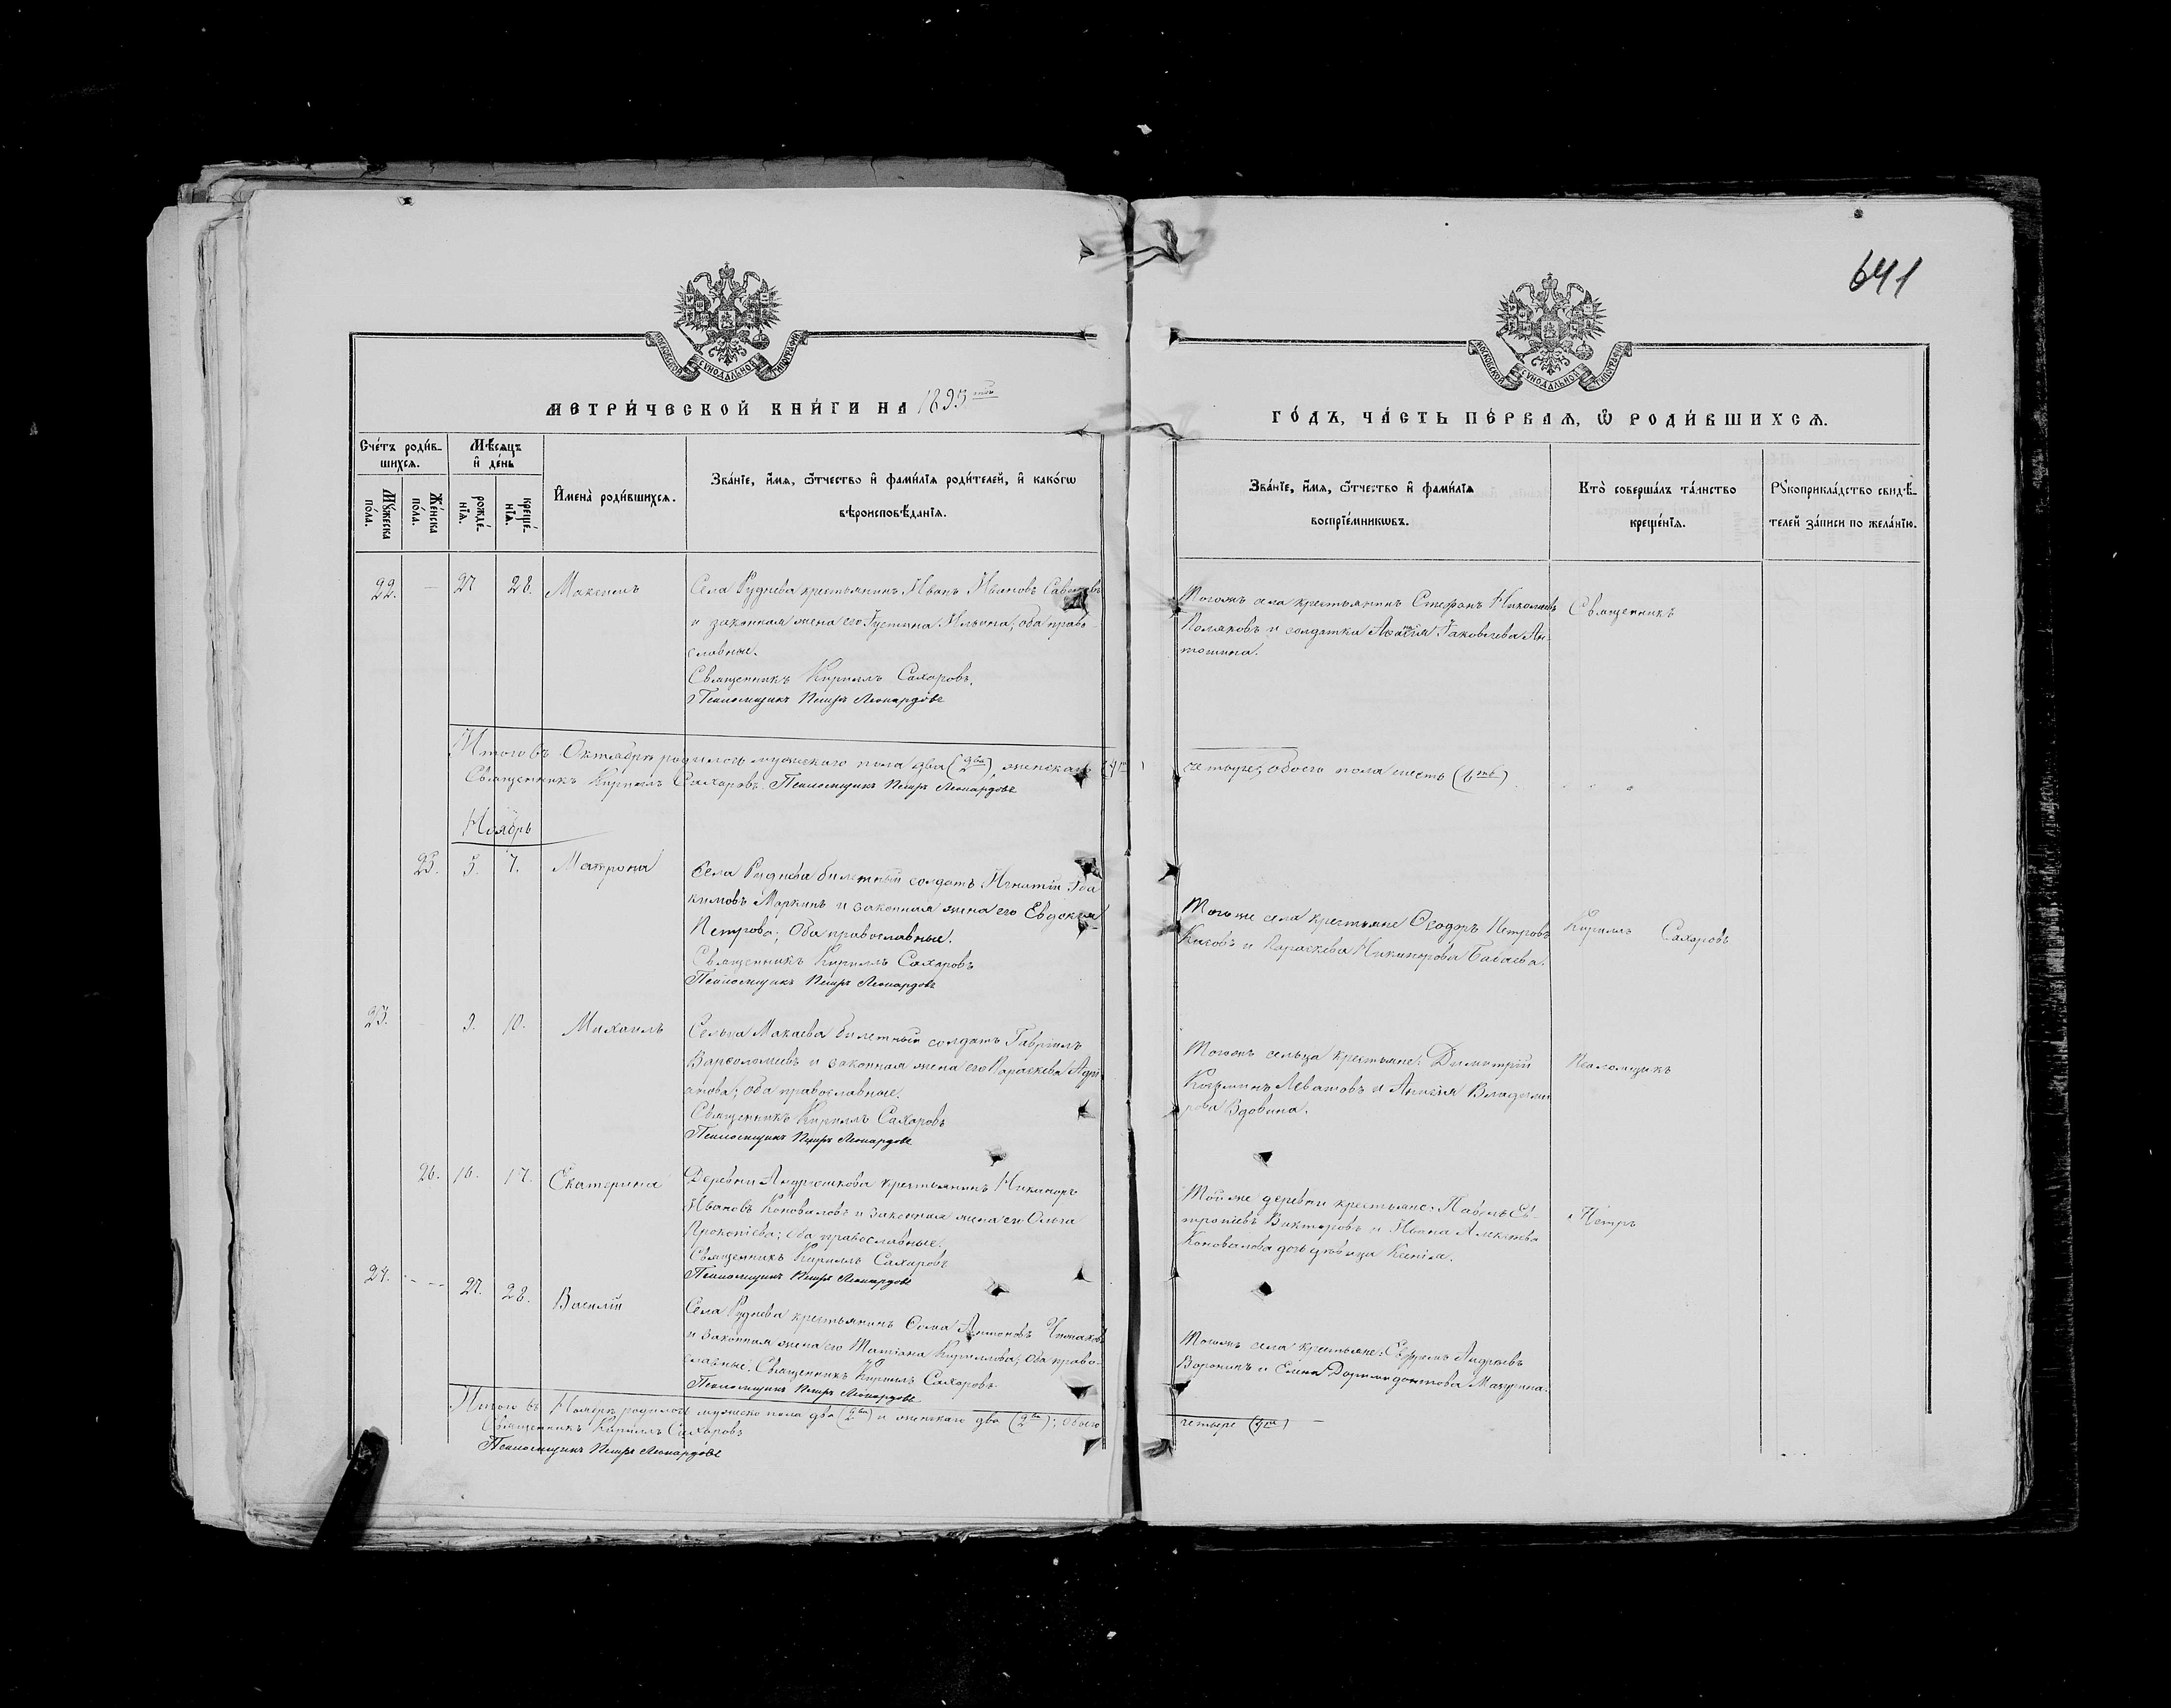 641
МОСКОВСКОЙ СѴНОДАЛЬНОЙ ТИПОГРАФІИ
МОСКОВСКОЙ СѴНОДАЛЬНОЙ ТИПОГРАФІИ
МЕТРИ́ЧЕСКОЙ КНИ́ГИ НА 1895
ГО́ДЪ, ЧА́СТЬ ПЕ́РВАѦ, Ѡ҆ РОДИ́ВШИХСѦ.
Сче́тъ роди́в-
шихсѧ.
Мꙋ́жеска
по́ла.
Же́нска
по́ла.
Мѣ́сѧцъ
и҆ де́нь
рожде́-
нїѧ.
креще́-
нїѧ.
И҆мена̀ роди́вшихсѧ.
Зва́нїе, и҆́мѧ, ѻ҆́тчество и҆ фами́лїѧ роди́телей, и҆ како́гѡ
вѣроисповѣ́данїѧ.
Зва́нїе, и҆́мѧ, ѻ҆́тчество и҆ фами́лїѧ
воспрїе́мникѡвъ.
Кто̀ соверша́лъ та́инство
креще́нїѧ.
Рꙋкоприкла́дство свидѣ́-
телей за́писи по жела́нїю.
22. — 27 28. Максимъ
Села Руднева крестьянинъ Иванъ Ивановъ
и законная жена его Густина Ильина; оба право-
славные.
Священникъ Кириллъ Сахаровъ.
Псаломщикъ Петръ Леонардовъ
Тогожъ села крестьянинъ Стефанъ Николаевъ
Поляковъ и солдатка Іаковлева Ан-
тошина.
Священникъ
Итого въ Октябрѣ родилось мужескаго пола два (2ва), женскаго (4ре)
четыре; обоего пола шесть (6ть)
Священникъ Кириллъ Сахаровъ. Псаломщикъ Петръ Леонардовъ
Ноябрь
25. 5. 7. Матрона
Села Руднева билетный солдатъ Игнатій Іоа
кимовъ Маркинъ и законная жена его Евдокія
Петрова; Оба православные.
Священникъ Кириллъ Сахаровъ
Псаломщикъ Петръ Леонардовъ
Тогоже села крестьяне Ѳеодоръ Петровъ
и Параскева Никанорова Бабаева.
Кириллъ Сахаровъ
23. 9. 10. Михаилъ
Сельца Макаева билетный солдатъ Гавріилъ
Варѳоломеевъ и законная жена его Параскева Адрі
анова; оба православные.
Священникъ Кириллъ Сахаровъ
Псаломщикъ Петръ Леонардовъ
Тогожъ сельца крестьяне: Димитрій
Козьминъ Леватовъ и Анисія Владими
рова Вдовина.
Псаломщикъ
26. 16. 17. Екатерина
Деревни Андрюшкова крестьянинъ Никаноръ
Ивановъ Коноваловъ и законная жена его Ольга
Прокопіева; оба православные.
Священникъ Кириллъ Сахаровъ
Псаломщикъ Петръ Леонардовъ
Той же деревни крестьяне: Павелъ Ев-
тропіевъ Викторовъ и Ивана Алексѣева
Коновалова дочь дѣвица Ксенія.
Петръ
24. 27. 28. Василій
Села Руднева крестьянинъ Ѳома Антоновъ
и законная жена его Татіана Кириллова; оба право-
славные. Священникъ Кириллъ Сахаровъ.
Псаломщикъ Петръ Леонардовъ
Тогожъ села крестьяне: Ефремъ Андреевъ
Воронинъ и Елена Доримедонтова Мазурина.
Итого въ Ноябрѣ родилось мужеско пола два (2ва) и женскаго два (2ва); обоего
четыре (4ре)
Священникъ Кириллъ Сахаровъ
Псаломщикъ Петръ Леонардовъ